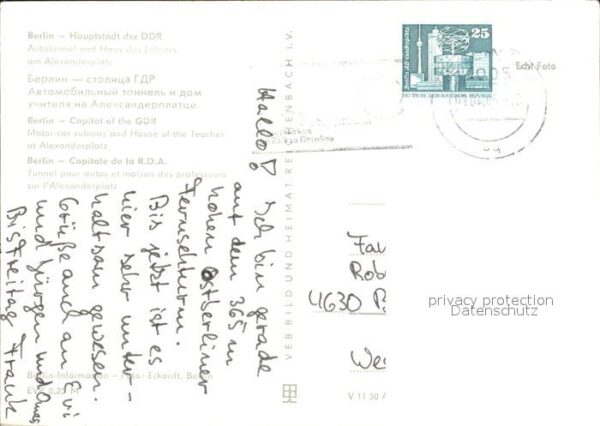 Berlin – Hauptstadt der DDR
Autotunnel und Haus des Lehrers
am Alexanderplatz
Берлин — столица ГДР
Автомобильный тоннель и дом
учителя на Александерплатце
Berlin – Capital of the GDR
Motor-car subway and House of the Teacher
at Alexanderplatz
Berlin – Capitale de la R.D.A.
Tunnel pour autos et maison des professeurs
sur l'Alexanderplatz
Hallo!
Ich bin gerade
auf dem 365 m
hohen Ostberliner
Fernsehturm.
Bis jetzt ist es
hier sehr unter-
haltsam gewesen.
Grüße auch an Evi
und Jürgen und Omas
Bis Freitag Frank
Berlin-Information – Foto: Eckardt, Berlin
EVP 0,25 M
VEB BILD UND HEIMAT REICHENBACH I. V.
Berlin Alexanderplatz
25
DEUTSCHE DEMOKRATISCHE REPUBLIK
Echt Foto
Rob
4630
privacy protection
Datenschutz
We
V 11 50 A